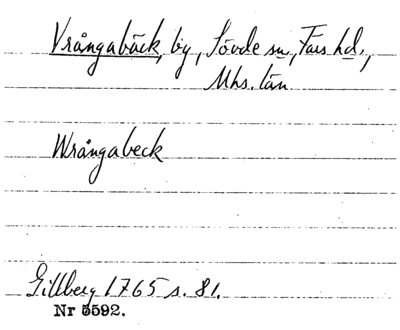 Vrångabäck, by, Sövde sn, Färs hd,
Mhs. län.
Wrångabeck
Gillberg 1765 s. 81.
Nr 5592.